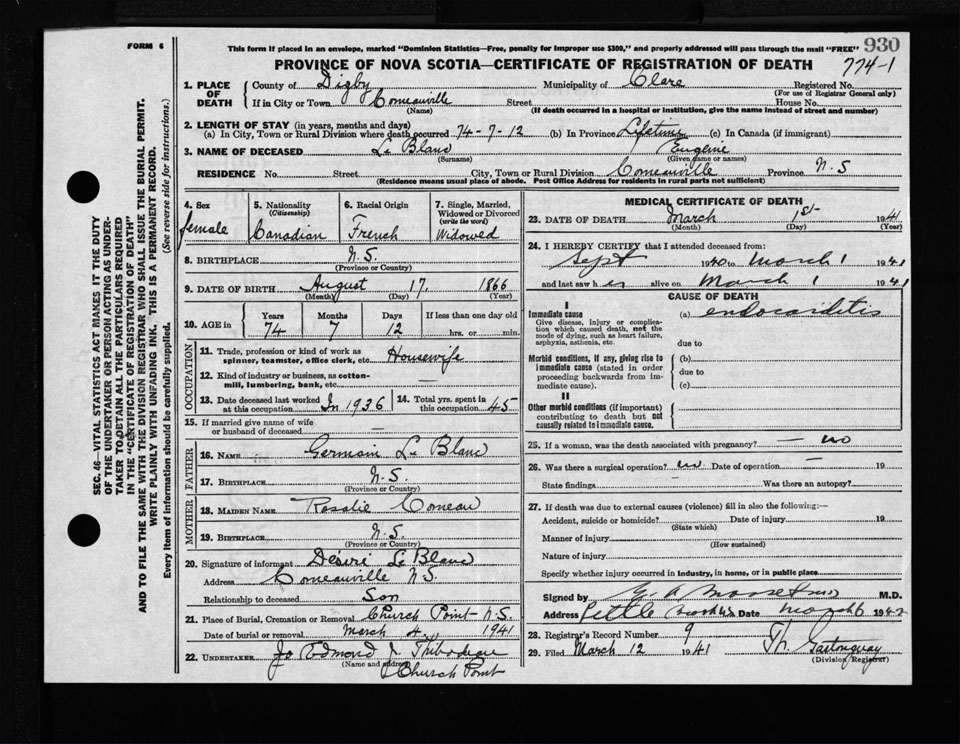 FORM 6
This form if placed in an envelope, marked "Dominion Statistics—Free, penalty for improper use $300," and properly addressed will pass through the mail "FREE"
930
PROVINCE OF NOVA SCOTIA—CERTIFICATE OF REGISTRATION OF DEATH
774-1
SEC. 46—VITAL STATISTICS ACT MAKES IT THE DUTY
OF THE UNDERTAKER OR PERSON ACTING AS UNDER-
TAKER TO OBTAIN ALL THE PARTICULARS REQUIRED
IN THE "CERTIFICATE OF REGISTRATION OF DEATH"
AND TO FILE THE SAME WITH THE DIVISION REGISTRAR WHO SHALL ISSUE THE BURIAL PERMIT.
WRITE PLAINLY WITH UNFADING INK. THIS IS A PERMANENT RECORD.
Every item of information should be carefully supplied. (See reverse side for instructions.)
1. PLACE OF DEATH
County of Digby Municipality of Clare Registered No.
(For use of Registrar General only)
If in City or Town Comeauville Street House No.
(Name) (If death occurred in a hospital or institution, give the name instead of street and number)
2. LENGTH OF STAY (in years, months and days)
(a) In City, Town or Rural Division where death occurred 74-7-12 (b) In Province Lifetime (c) In Canada (if immigrant)
3. NAME OF DECEASED Le Blanc Eugénie
(Surname) (Given name or names)
RESIDENCE No. Street City, Town or Rural Division Comeauville Province N.S
(Residence means usual place of abode. Post Office Address for residents in rural parts not sufficient)
4. Sex
female
5. Nationality
(Citizenship)
Canadian
6. Racial Origin
French
7. Single, Married, Widowed or Divorced
(write the word)
Widowed
8. BIRTHPLACE N.S.
(Province or Country)
9. DATE OF BIRTH August 17. 1866
(Month) (Day) (Year)
10. AGE in
Years Months Days If less than one day old
74 7 12 hrs. or min.
OCCUPATION
11. Trade, profession or kind of work as
spinner, teamster, office clerk, etc. Housewife
12. Kind of industry or business, as cotton-
mill, lumbering, bank, etc. —
13. Date deceased last worked
at this occupation In 1936
14. Total yrs. spent in
this occupation 45
15. If married give name of wife
or husband of deceased —
FATHER
16. NAME Germain Le Blanc
17. BIRTHPLACE N.S.
(Province or Country)
MOTHER
18. MAIDEN NAME Rosalie Comeau
19. BIRTHPLACE N.S.
(Province or Country)
20. Signature of informant Désiré Le Blanc
Address Comeauville N.S.
Relationship to deceased Son
21. Place of Burial, Cremation or Removal Church Point N.S.
Date of burial or removal March 4 1941
22. UNDERTAKER Edmond J. Thibodeau
(Name and address) Church Point
MEDICAL CERTIFICATE OF DEATH
23. DATE OF DEATH March 1st 1941
(Month) (Day) (Year)
24. I HEREBY CERTIFY that I attended deceased from:
Sept 1940 to March 1 1941
and last saw her alive on March 1 1941
CAUSE OF DEATH
I
Immediate cause
Give disease, injury or complica-
tion which caused death, not the
mode of dying, such as heart failure,
asphyxia, asthenia, etc.
(a) endocarditis
due to
Morbid conditions, if any, giving rise to
immediate cause (stated in order
proceeding backwards from im-
mediate cause).
(b)
due to
(c)
II
Other morbid conditions (if important)
contributing to death but not
causally related to immediate cause.
25. If a woman, was the death associated with pregnancy? — no
26. Was there a surgical operation? no Date of operation — 19
State findings Was there an autopsy?
27. If death was due to external causes (violence) fill in also the following:—
Accident, suicide or homicide? Date of injury 19
(State which)
Manner of injury
(How sustained)
Nature of injury
Specify whether injury occurred in industry, in home, or in public place
Signed by M.D.
Address Little Brook N.S Date March 6 1942
28. Registrar's Record Number 9
29. Filed March 12 1941 Th. Gastonguay
(Division Registrar)